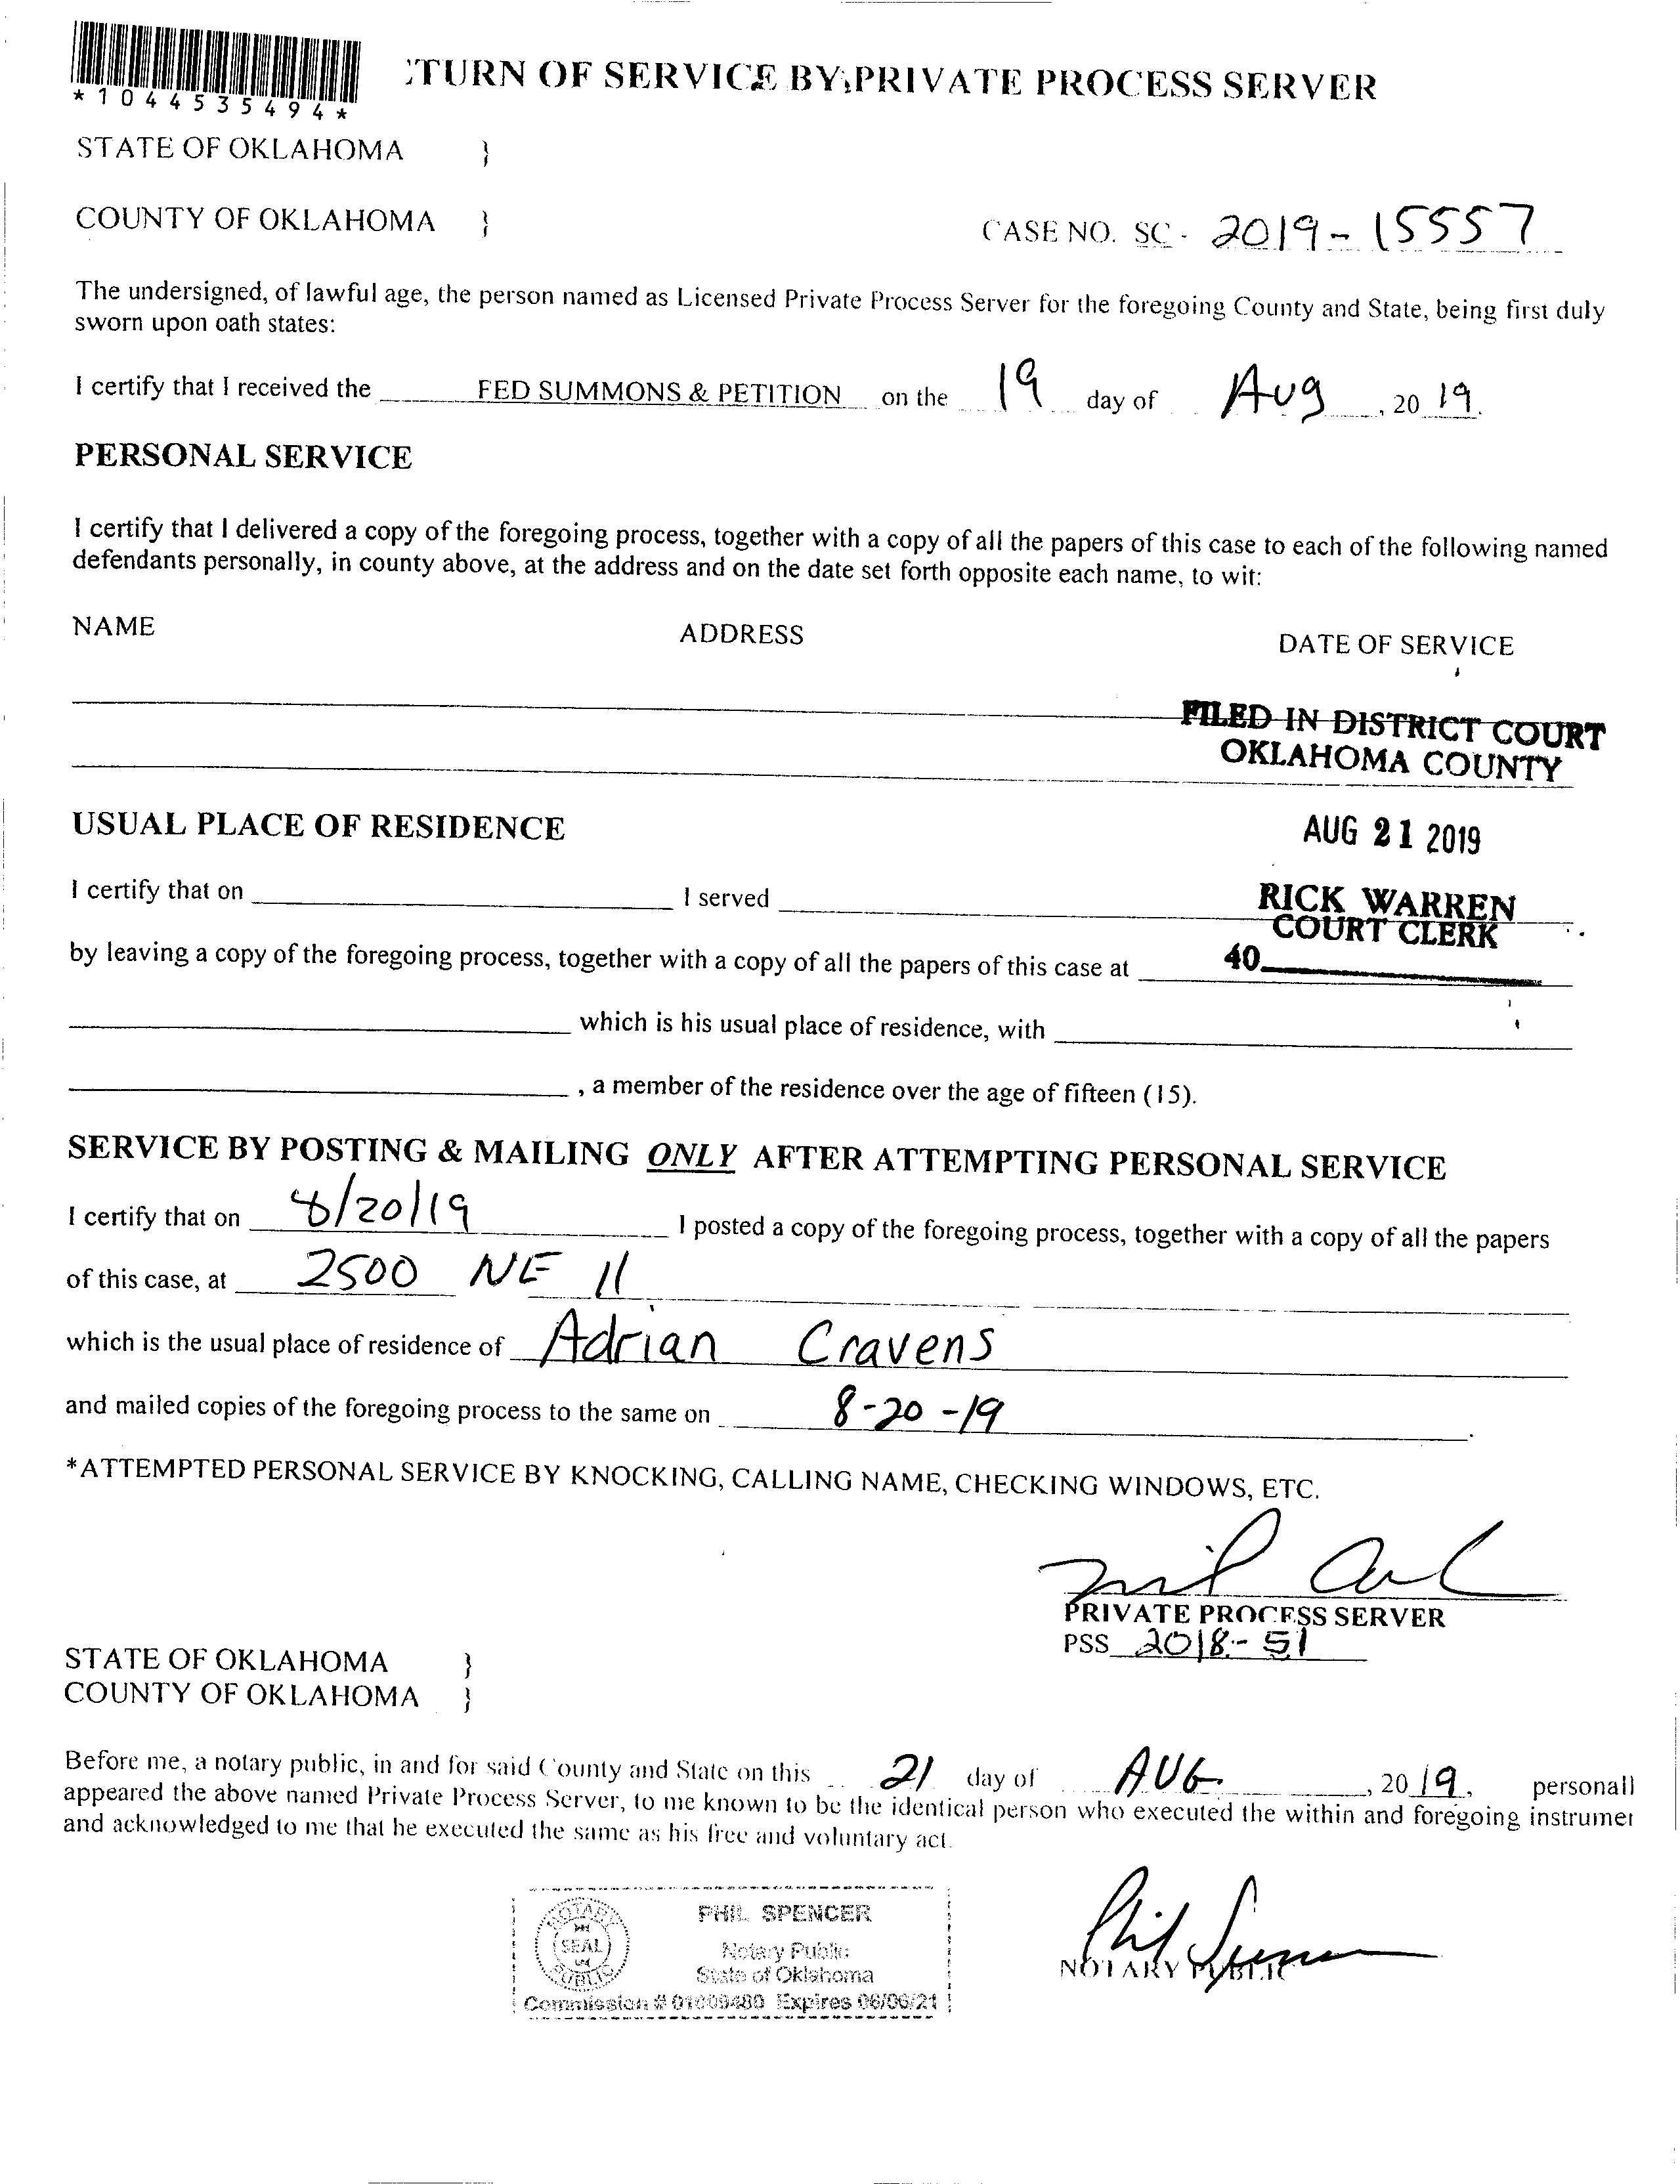 *1044535494*
TURN OF SERVICE BY PRIVATE PROCESS SERVER
STATE OF OKLAHOMA }
COUNTY OF OKLAHOMA }
CASE NO. SC - 2019-15557
The undersigned, of lawful age, the person named as Licensed Private Process Server for the foregoing County and State, being first duly
sworn upon oath states:
I certify that I received the FED SUMMONS & PETITION on the 19 day of Aug, 20 19.
PERSONAL SERVICE
I certify that I delivered a copy of the foregoing process, together with a copy of all the papers of this case to each of the following named
defendants personally, in county above, at the address and on the date set forth opposite each name, to wit:
NAME ADDRESS DATE OF SERVICE
FILED IN DISTRICT COURT
OKLAHOMA COUNTY
USUAL PLACE OF RESIDENCE
AUG 21 2019
I certify that on I served
RICK WARREN
COURT CLERK
by leaving a copy of the foregoing process, together with a copy of all the papers of this case at
40
which is his usual place of residence, with
, a member of the residence over the age of fifteen (15).
SERVICE BY POSTING & MAILING ONLY AFTER ATTEMPTING PERSONAL SERVICE
I certify that on 8/20/19 I posted a copy of the foregoing process, together with a copy of all the papers
of this case, at 2500 NE 11
which is the usual place of residence of Adrian Cravens
and mailed copies of the foregoing process to the same on 8-20-19.
*ATTEMPTED PERSONAL SERVICE BY KNOCKING, CALLING NAME, CHECKING WINDOWS, ETC.
PRIVATE PROCESS SERVER
PSS 2018-51
STATE OF OKLAHOMA }
COUNTY OF OKLAHOMA }
Before me, a notary public, in and for said County and State on this 21 day of AUG, 20 19, personall
appeared the above named Private Process Server, to me known to be the identical person who executed the within and foregoing instrumer
and acknowledged to me that he executed the same as his free and voluntary act.
NOTARY
SEAL
PUBLIC
PHIL SPENCER
Notary Public
State of Oklahoma
Commission # 01009480 Expires 06/06/21
Phil Spencer
NOTARY PUBLIC